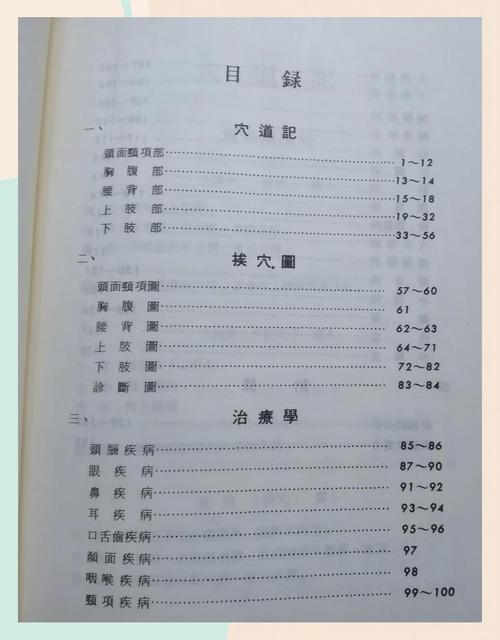 目 錄
一、 穴道記
頭面頸項部 1～12
胸腹部 13～14
腰背部 15～18
上肢部 19～32
下肢部 33～56
二、 挨穴圖
頭面頸項圖 57～60
胸腹圖 61
腰背圖 62～63
上肢圖 64～71
下肢圖 72～82
診斷圖 83～84
三、 治療學
頭腦疾病 85～86
眼疾病 87～90
鼻疾病 91～92
耳疾病 93～94
口舌齒疾病 95～96
顏面疾病 97
咽喉疾病 98
頸項疾病 99～100